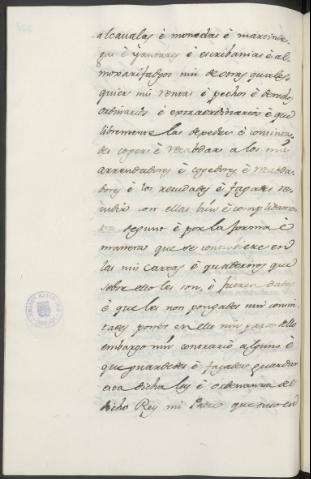 alcavalas è monedas è martinie-
gas è yantares è escribanias è al-
moxarifadgos ni de otras quales
quier mis rentas è pechos è derechos
ordinarios è extraordinarios è que
libremente las dexedes è consintades
des coger è recabdar a los mis
arrendadores è cogedores è recabda-
dores è los recudades è fagades re-
cudir con ellas bien è complidamen-
te segunt è por la forma è
manera que se contubiere en
las mis cartas è quadernos que
sobre ello les son, è fueren dados
è que les non pongades nin consin-
tades poner en ello nin parte dello
embargo nin contrario alguno è
que guardedes è fagades guardar
esta dicha ley è ordenanza del
dicho Rey mi Padre que sus en